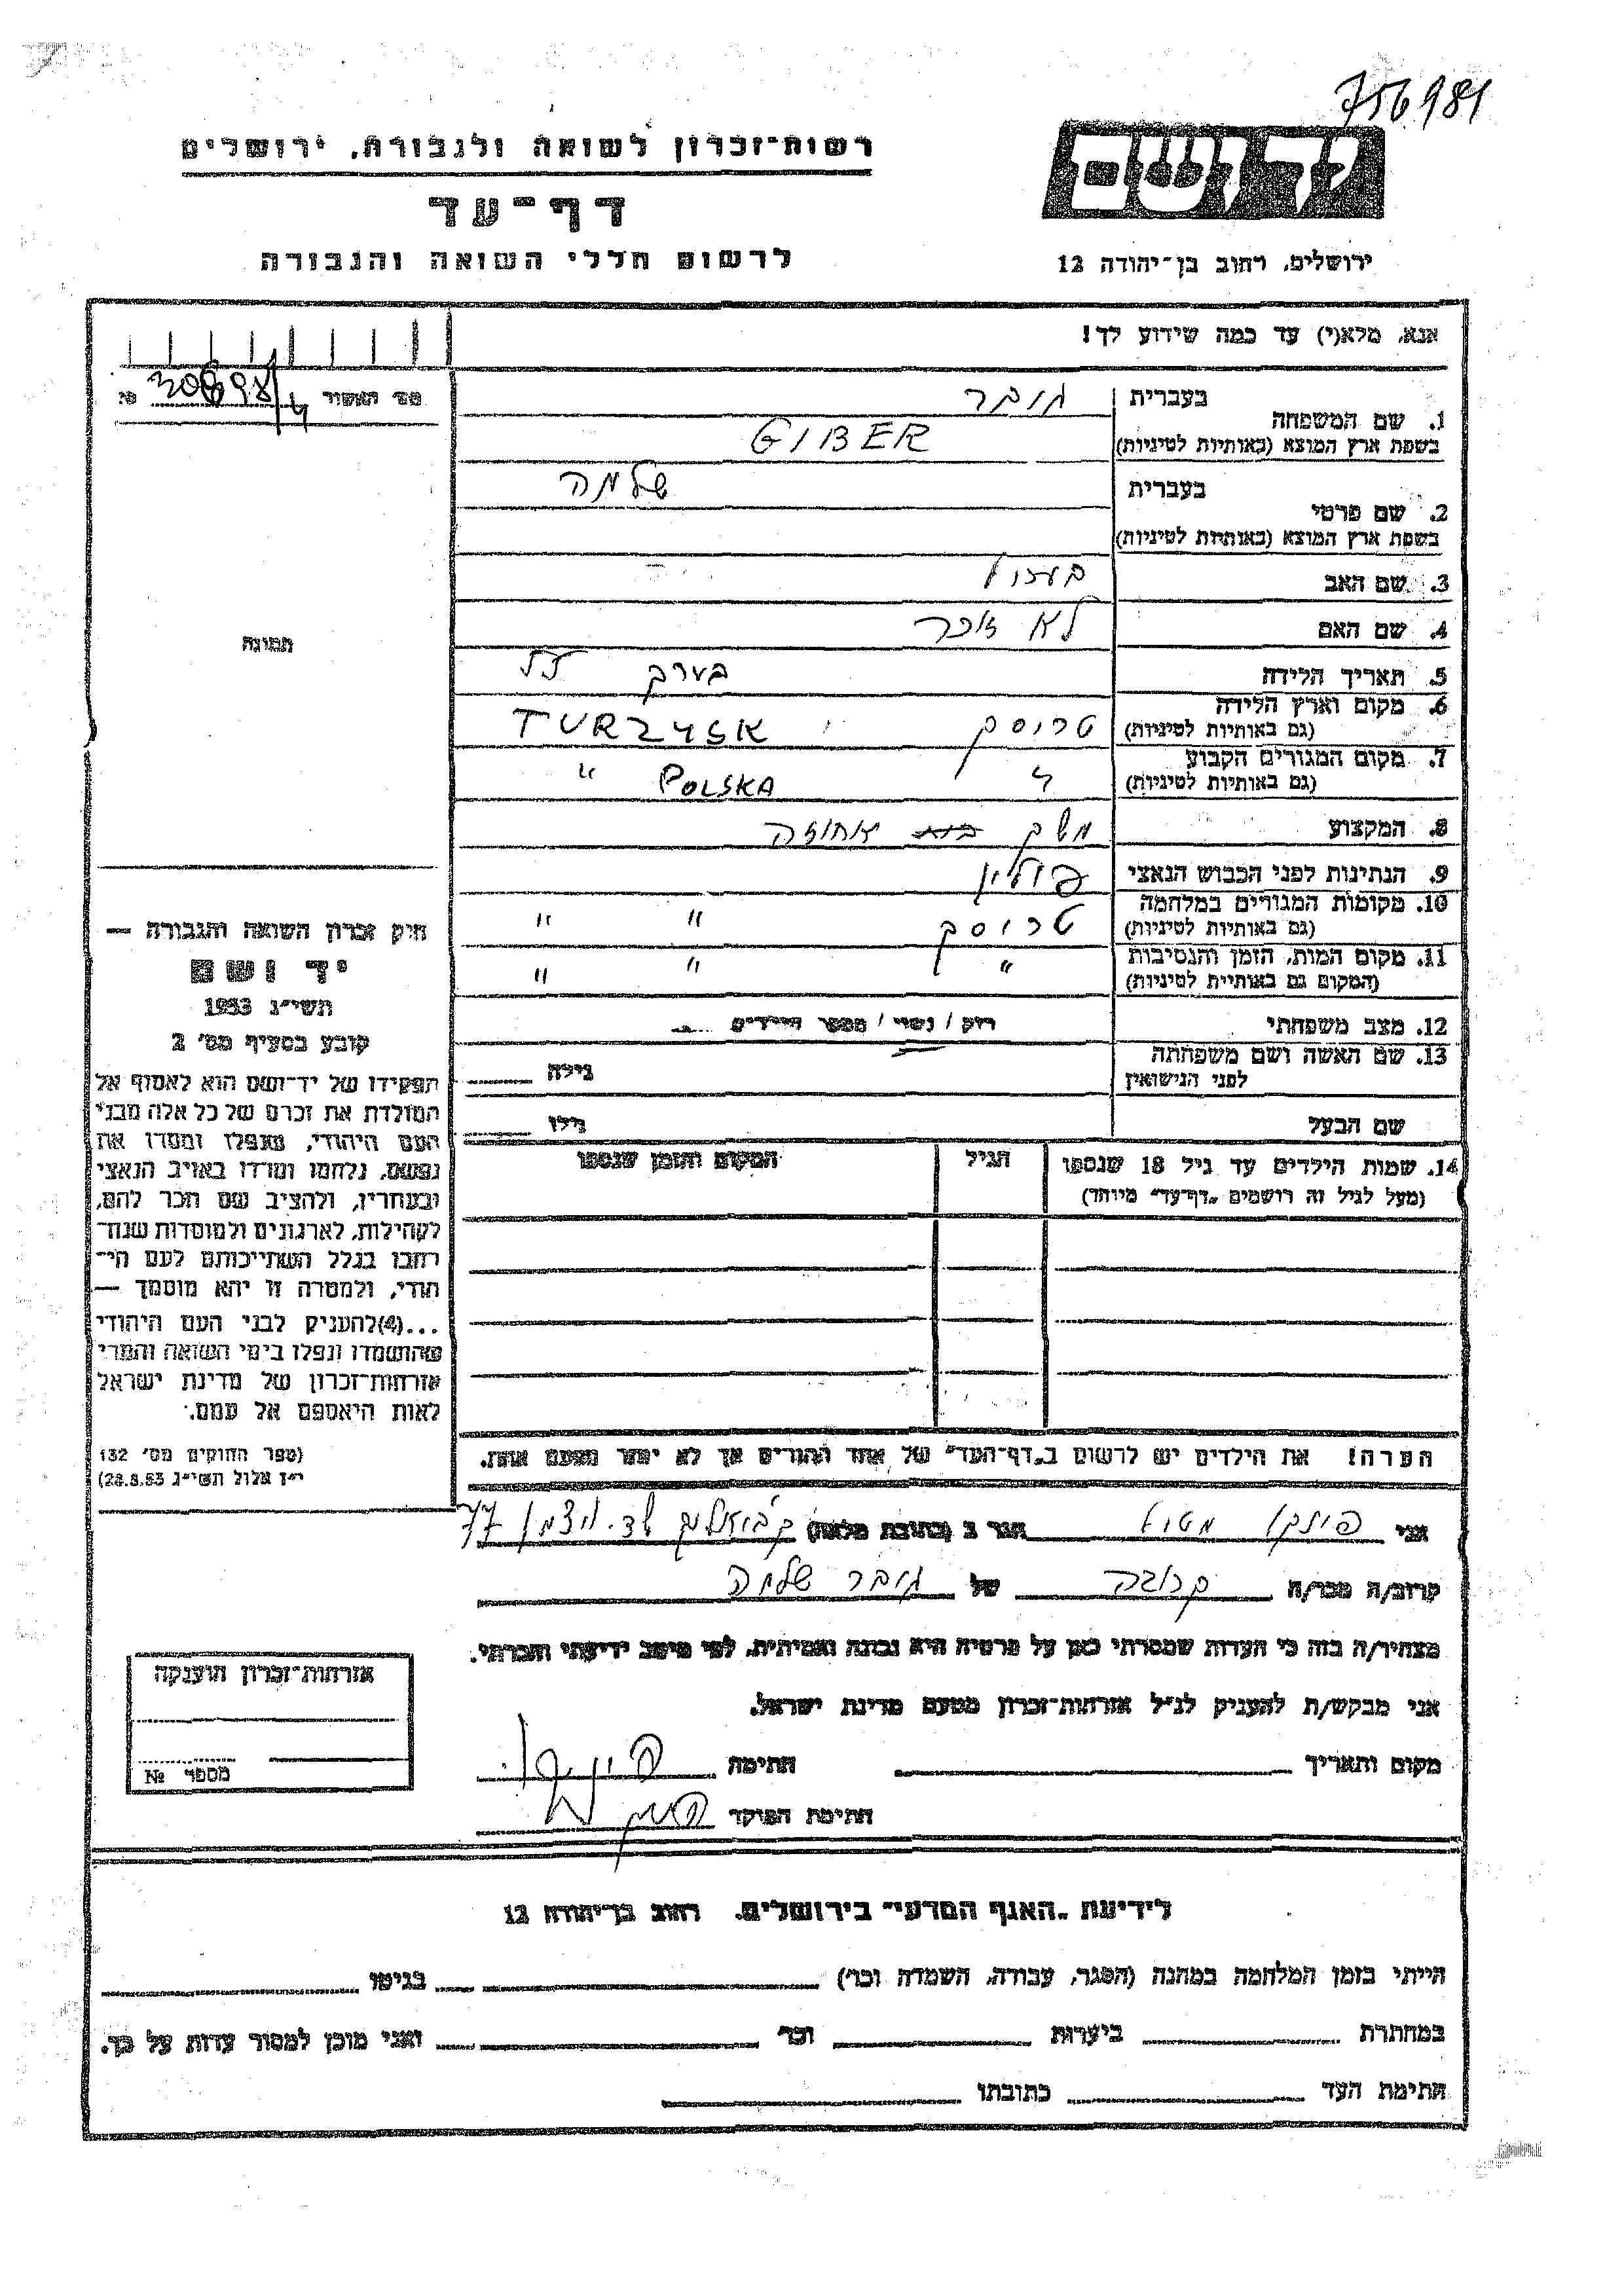 756981
יד ושם
ירושלים, רחוב בן־יהודה 12
רשות־זכרון לשואה ולגבורה, ירושלים
דף־עד
לרשום חללי השואה והגבורה
אנא, מלא(י) עד כמה שידוע לך!
מס' תאשור №
1. שם המשפחה
בעברית גובר
בשפת ארץ המוצא (באותיות לטיניות) GIBER
2. שם פרטי
בעברית שלמה
בשפת ארץ המוצא (באותיות לטיניות)
3. שם האב
4. שם האם לא זוכר
5. תאריך הלידה בערך
6. מקום וארץ הלידה (גם באותיות לטיניות) טרוסק TURZYSK
7. מקום המגורים הקבוע (גם באותיות לטיניות) " POLSKA "
8. המקצוע משק אחוזה
9. הנתינות לפני הכבוש הנאצי פולין
10. מקומות המגורים במלחמה (גם באותיות לטיניות) טרוסק " "
11. מקום המות, הזמן והנסיבות (המקום גם באותיות לטיניות) " " "
12. מצב משפחתי רוק / נשוי / מספר הילדים
13. שם האשה ושם משפחתה לפני הנישואין גילה
שם הבעל גילו
14. שמות הילדים עד גיל 18 שנספו
(מעל לגיל זה רושמים „דף־עד" מיוחד)
הגיל
המקום והזמן שנספו
הערה! את הילדים יש לרשום ב„דף־העד" של אחד ההורים אך לא יותר מפעם אחת.
תמונה
חוק זכרון השואה והגבורה —
יד ושם
תשי"ג 1953
קובע בסעיף מס' 2
תפקידו של יד־ושם הוא לאסוף אל
המולדת את זכרם של כל אלה מבני
העם היהודי, שנפלו ומסרו את
נפשם, נלחמו ומרדו באויב הנאצי
ובעוזריו, ולהציב שם וזכר להם,
לקהילות, לארגונים ולמוסדות שנח־
רבו בגלל השתייכותם לעם הי־
הודי, ולמטרה זו יהא מוסמך —
...(4)להעניק לבני העם היהודי
שהושמדו ונפלו בימי השואה והמרי
אזרחות־זכרון של מדינת ישראל
לאות היאספם אל עמם.
(ספר החוקים מס' 132
י"ז אלול תשי"ג 28.8.53)
אני הגר ב (כתובת מלאה) 77
קרוב/ה מכר/ה קרובה של גובר שלמה
מצהיר/ה בזה כי העדות שמסרתי כאן על פרטיה היא נכונה ואמיתית, לפי מיטב ידיעתי והכרתי.
אני מבקש/ת להעניק לנ"ל אזרחות־זכרון מטעם מדינת ישראל.
מקום ותאריך חתימה
חתימת הפוקד
אזרחות־זכרון הוענקה
מספר №
לידיעת „האגף המדעי" בירושלים, רחוב בן־יהודה 12
הייתי בזמן המלחמה במחנה (הסגר, עבודה, השמדה וכו') בגיטו
במחתרת ביערות וכו' ואני מוכן למסור עדות על כך.
חתימת העד כתובתו